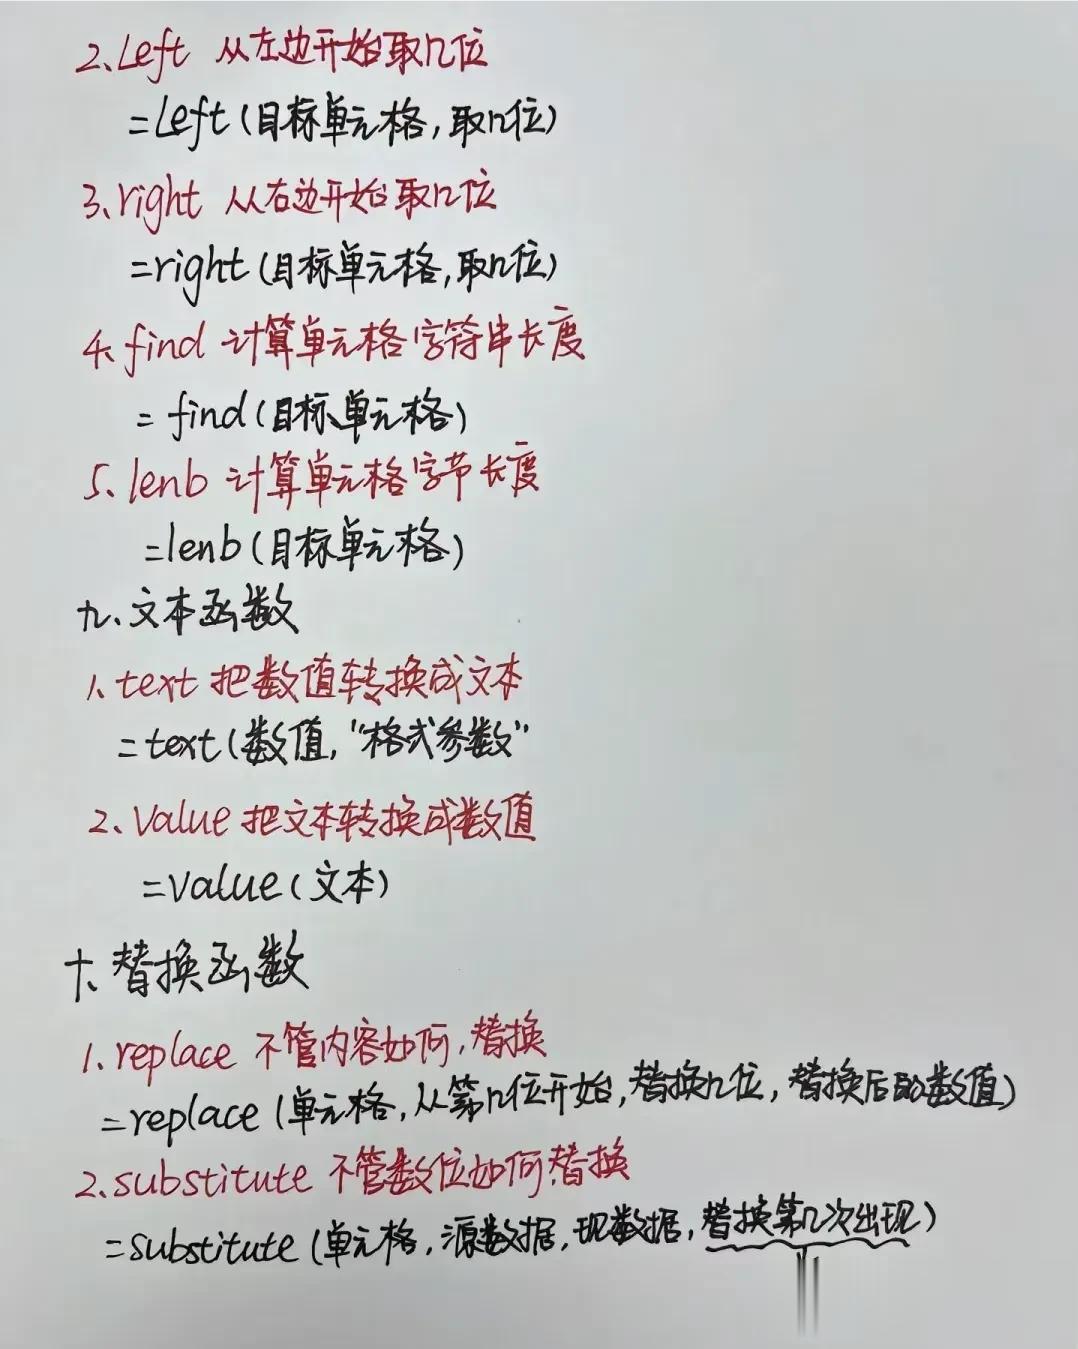 2、Left 从左边开始取几位
=Left(目标单元格,取几位)
3、right 从右边开始取几位
=right(目标单元格,取几位)
4、find 计算单元格字符串长度
=find(目标单元格)
5、lenb 计算单元格字节长度
=lenb(目标单元格)
九、文本函数
1、text 把数值转换成文本
=text(数值,"格式参数"
2、Value 把文本转换成数值
=Value(文本)
十、替换函数
1、replace 不管内容如何,替换
=replace(单元格,从第几位开始,替换几位,替换后的数值)
2、substitute 不管数位如何替换
=substitute(单元格,源数据,现数据,替换第几次出现)